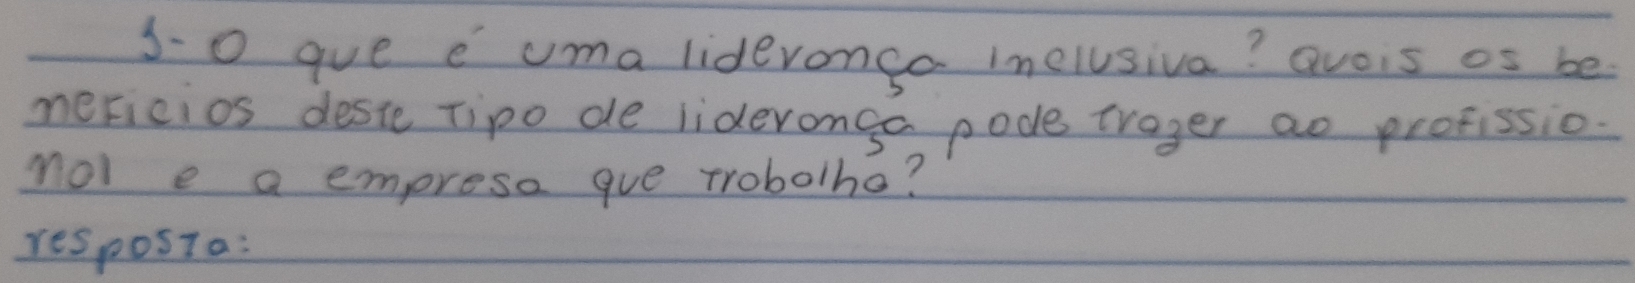 1- O que é uma liderança inclusiva? Quais os be-
neficios deste tipo de liderança pode trazer ao profissio-
nal e a empresa que trabalha?
resposta: